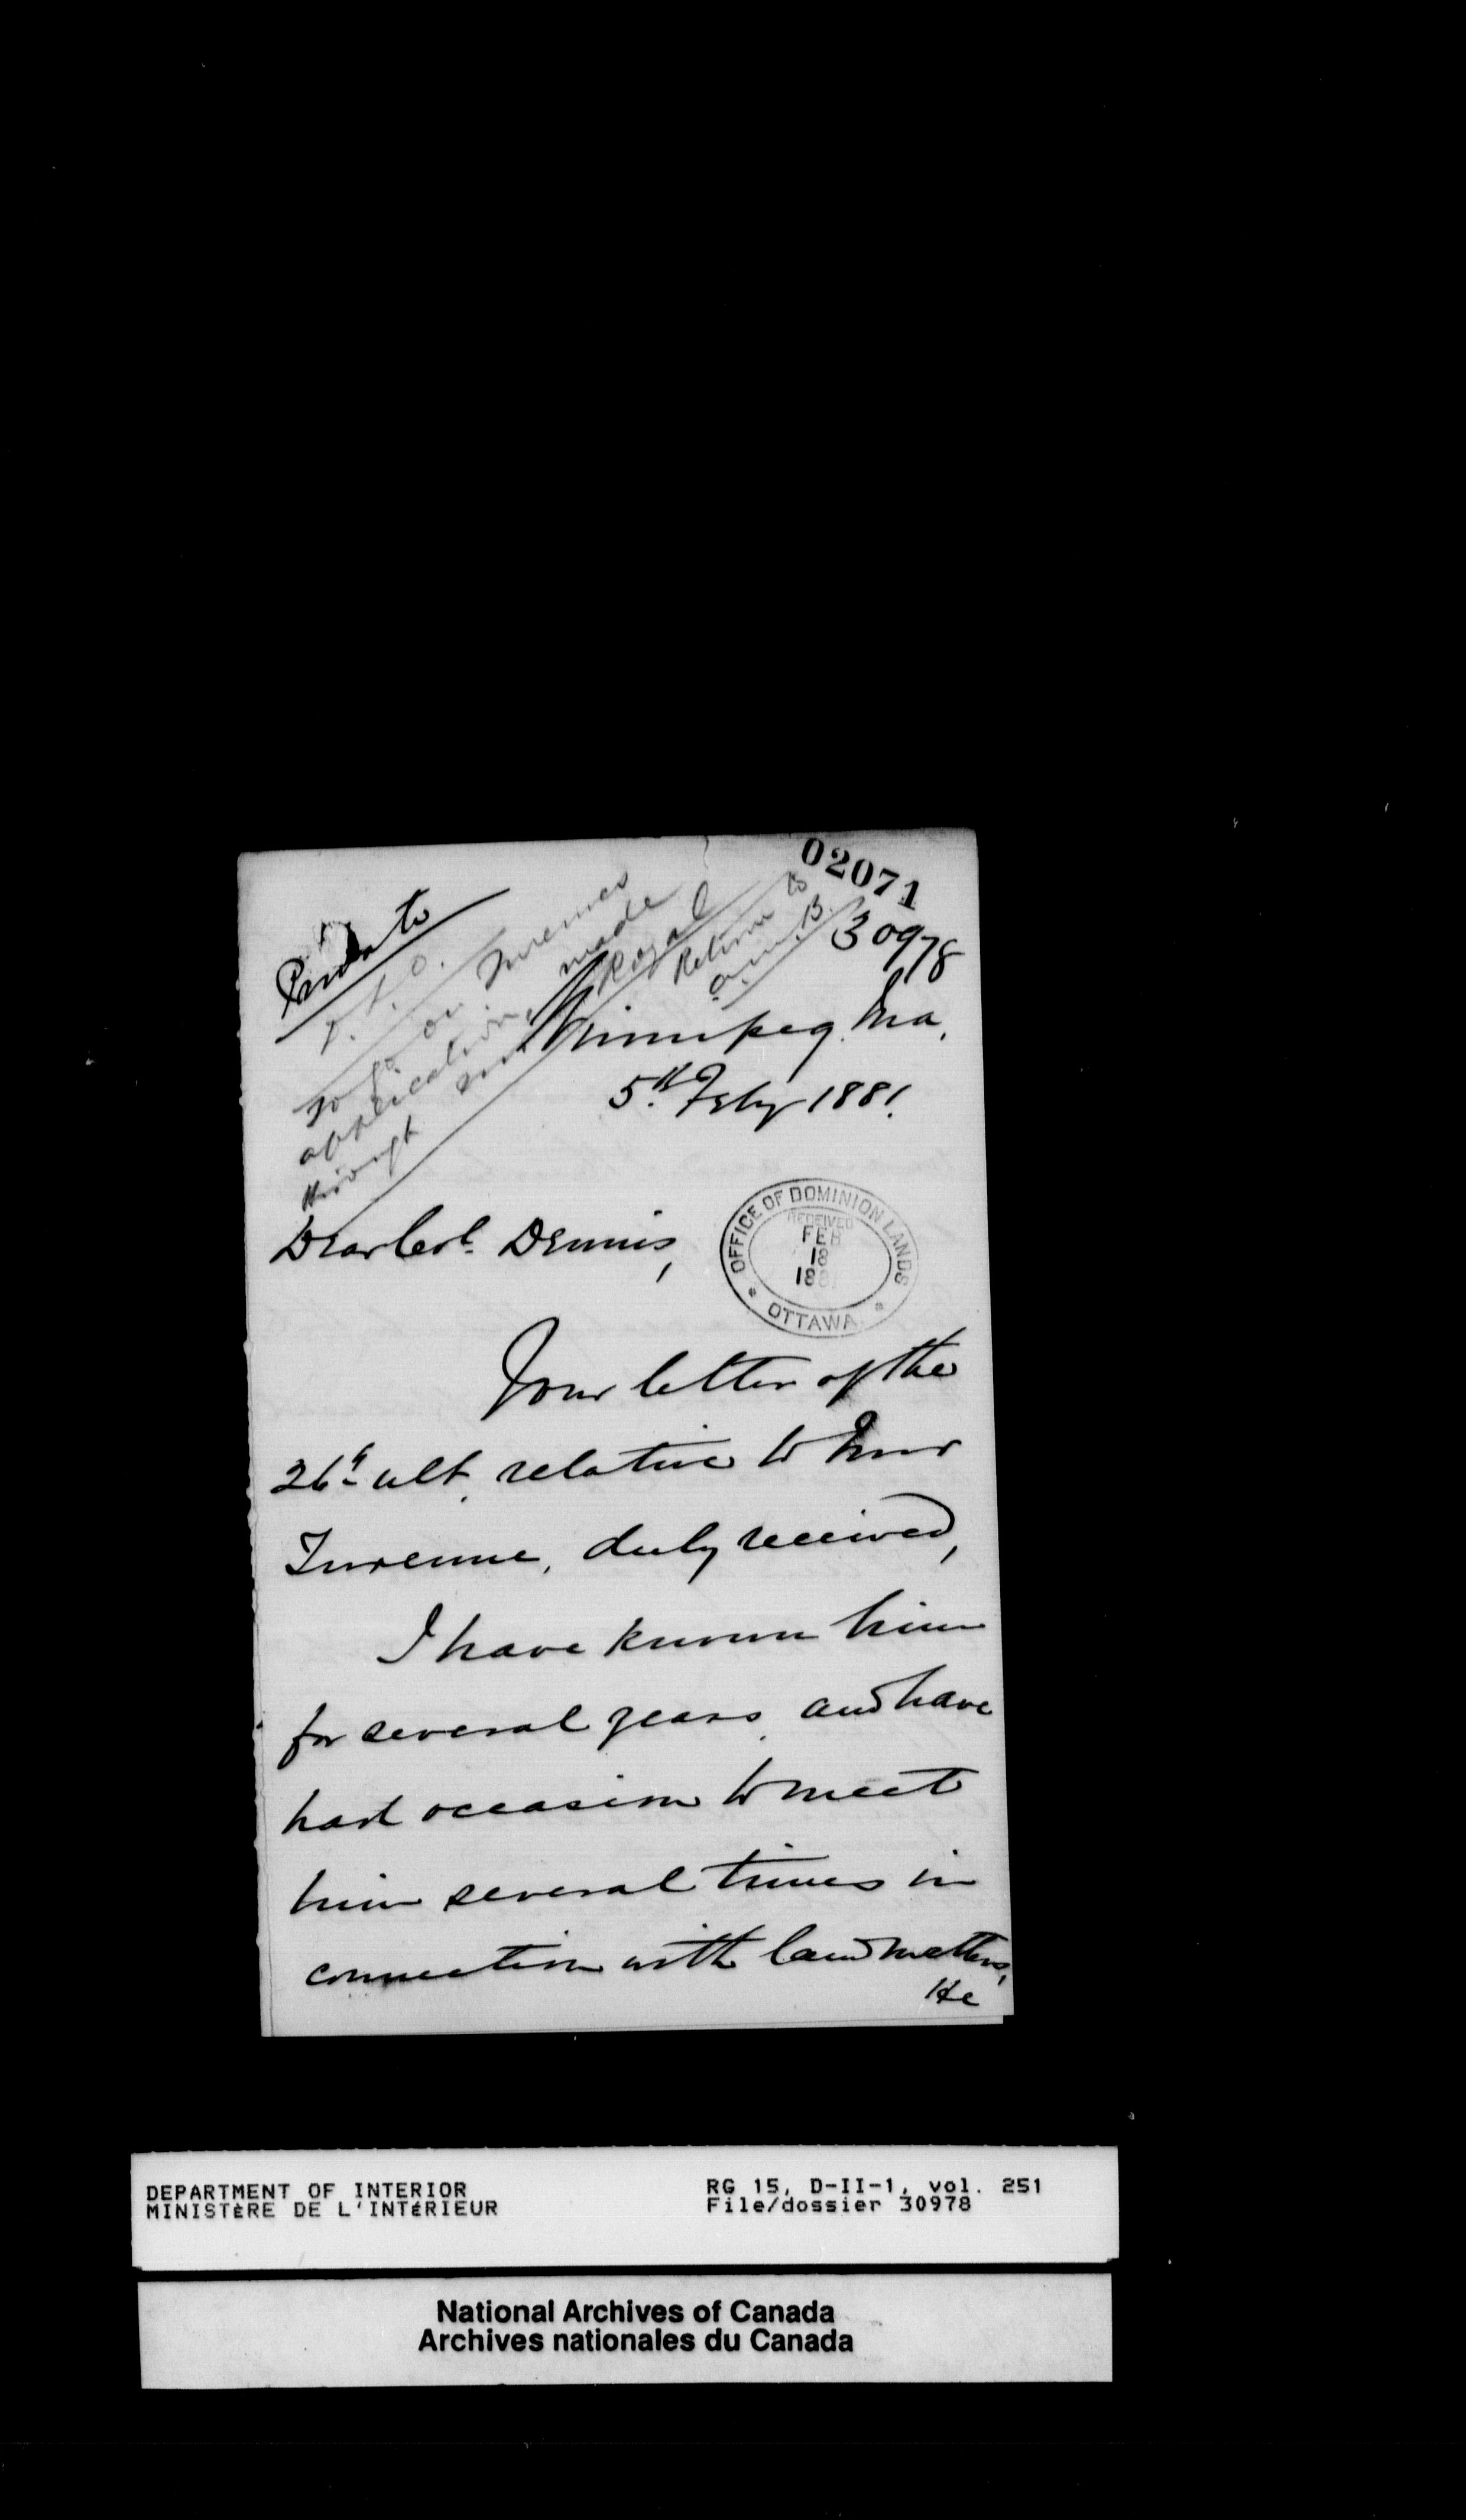 02071
30978
Private
P. L. O.
to go on Turennes
application, made
through Mr Royal
Return to
a.m.B.
Winnipeg. Ma.
5th Feby 1881.
OFFICE OF DOMINION LANDS
RECEIVED
FEB
18
1881
OTTAWA
Dear Col. Dennis,
Your letter of the
26th ult. relative to Mr
Turenne, duly received,
I have known him
for several years, and have
had occasion to meet
him several times in
connection with land matters,
He
DEPARTMENT OF INTERIOR
MINISTÈRE DE L'INTÉRIEUR
RG 15, D-II-1, vol. 251
File/dossier 30978
National Archives of Canada
Archives nationales du Canada